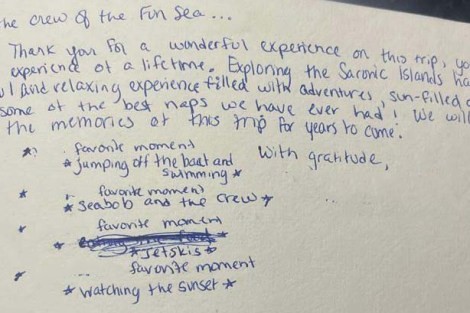 the crew of the Fun Sea ...
Thank you for a wonderful experience on this trip, yo
experience of a lifetime. Exploring the Saronic Islands ha
ul and relaxing experience filled with adventures, sun-filled
some of the best naps we have ever had! We will
the memories of this trip for years to come.
With gratitude,
* favorite moment
* jumping off the boat and
swimming *
* favorite moment
* seabob and the crew *
* favorite moment
* jetskis *
* favorite moment
* watching the sunset *